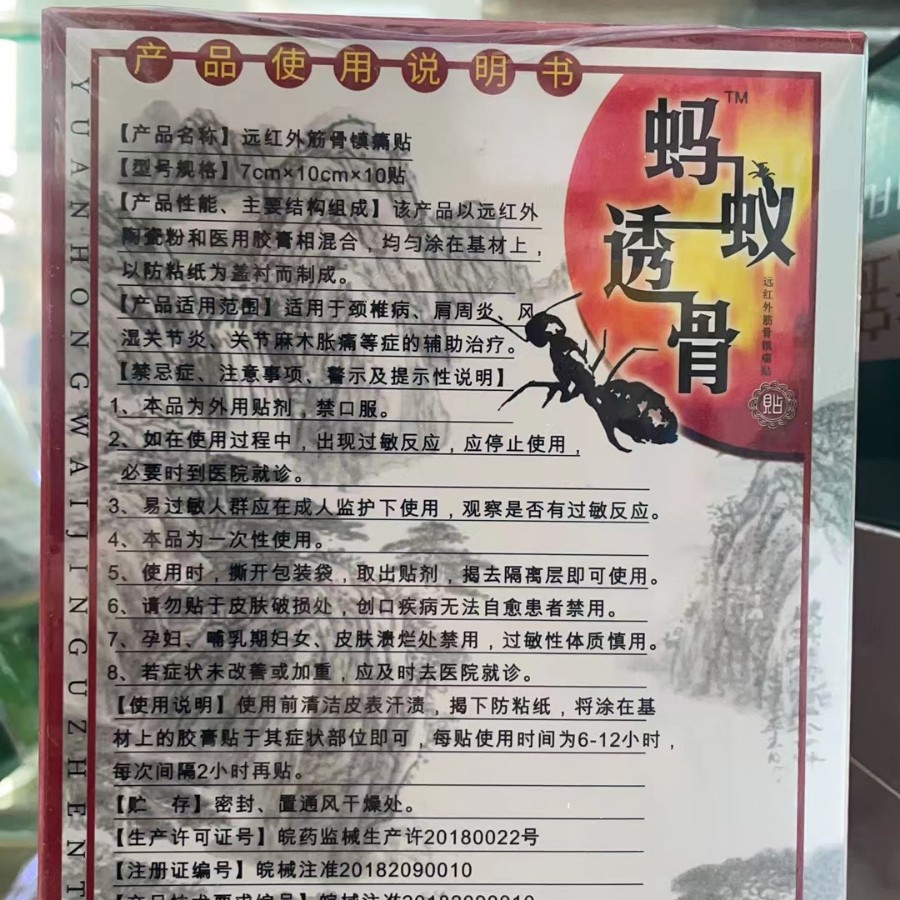 产品使用说明书
蚂蚁透骨
TM
远红外筋骨镇痛贴
贴
YUANHONGWAIJINGUZHENT
【产品名称】远红外筋骨镇痛贴
【型号规格】7cm×10cm×10贴
【产品性能、主要结构组成】该产品以远红外
陶瓷粉和医用胶膏相混合，均匀涂在基材上，
以防粘纸为盖衬而制成。
【产品适用范围】适用于颈椎病、肩周炎、风
湿关节炎、关节麻木胀痛等症的辅助治疗。
【禁忌症、注意事项、警示及提示性说明】
1、本品为外用贴剂，禁口服。
2、如在使用过程中，出现过敏反应，应停止使用，
必要时到医院就诊。
3、易过敏人群应在成人监护下使用，观察是否有过敏反应。
4、本品为一次性使用。
5、使用时，撕开包装袋，取出贴剂，揭去隔离层即可使用。
6、请勿贴于皮肤破损处，创口疾病无法自愈患者禁用。
7、孕妇、哺乳期妇女、皮肤溃烂处禁用，过敏性体质慎用。
8、若症状未改善或加重，应及时去医院就诊。
【使用说明】使用前清洁皮表汗渍，揭下防粘纸，将涂在基
材上的胶膏贴于其症状部位即可，每贴使用时间为6-12小时，
每次间隔2小时再贴。
【贮 存】密封、置通风干燥处。
【生产许可证号】皖药监械生产许20180022号
【注册证编号】皖械注准20182090010
【产品技术要求编号】皖械注准20182090010